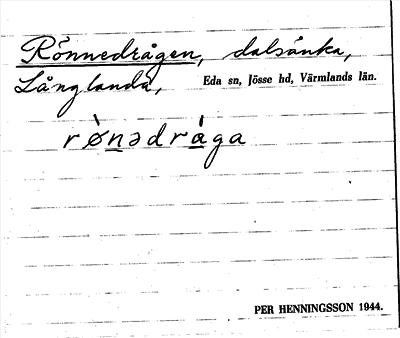 Rönnedrågen, dalsänka,
Långlanda, Eda sn, Jösse hd, Värmlands län.
rø̀nədrága
PER HENNINGSSON 1944.